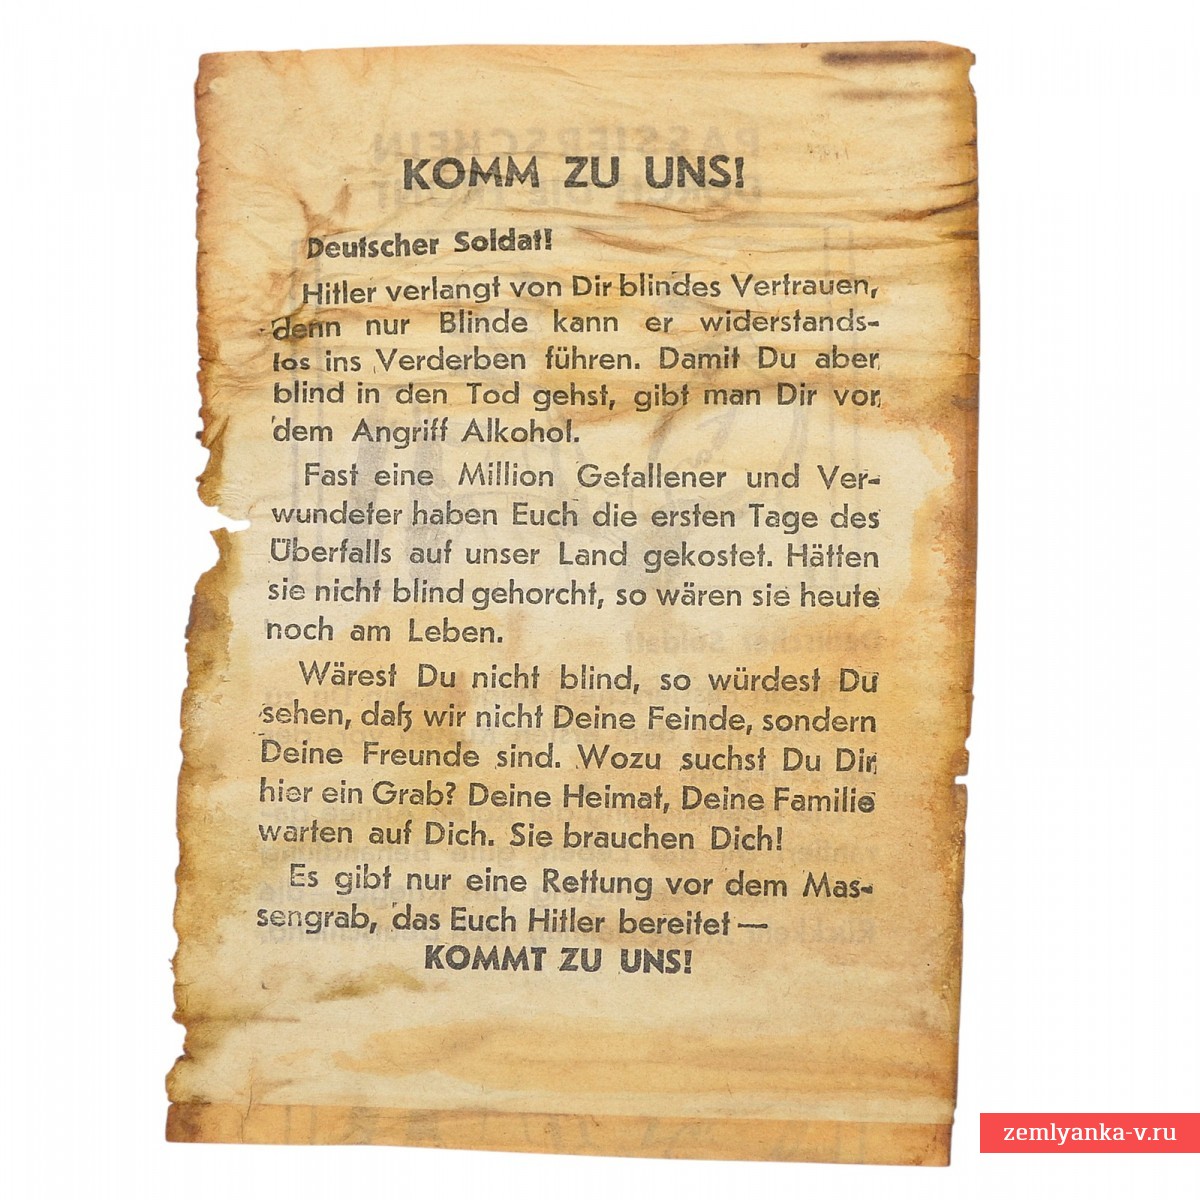 KOMM ZU UNS!
Deutscher Soldat!
Hitler verlangt von Dir blindes Vertrauen,
denn nur Blinde kann er widerstands-
los ins Verderben führen. Damit Du aber
blind in den Tod gehst, gibt man Dir vor
dem Angriff Alkohol.
Fast eine Million Gefallener und Ver-
wundeter haben Euch die ersten Tage des
Überfalls auf unser Land gekostet. Hätten
sie nicht blind gehorcht, so wären sie heute
noch am Leben.
Wärest Du nicht blind, so würdest Du
sehen, daß wir nicht Deine Feinde, sondern
Deine Freunde sind. Wozu suchst Du Dir
hier ein Grab? Deine Heimat, Deine Familie
warten auf Dich. Sie brauchen Dich!
Es gibt nur eine Rettung vor dem Mas-
sengrab, das Euch Hitler bereitet —
KOMMT ZU UNS!
zemlyanka-v.ru